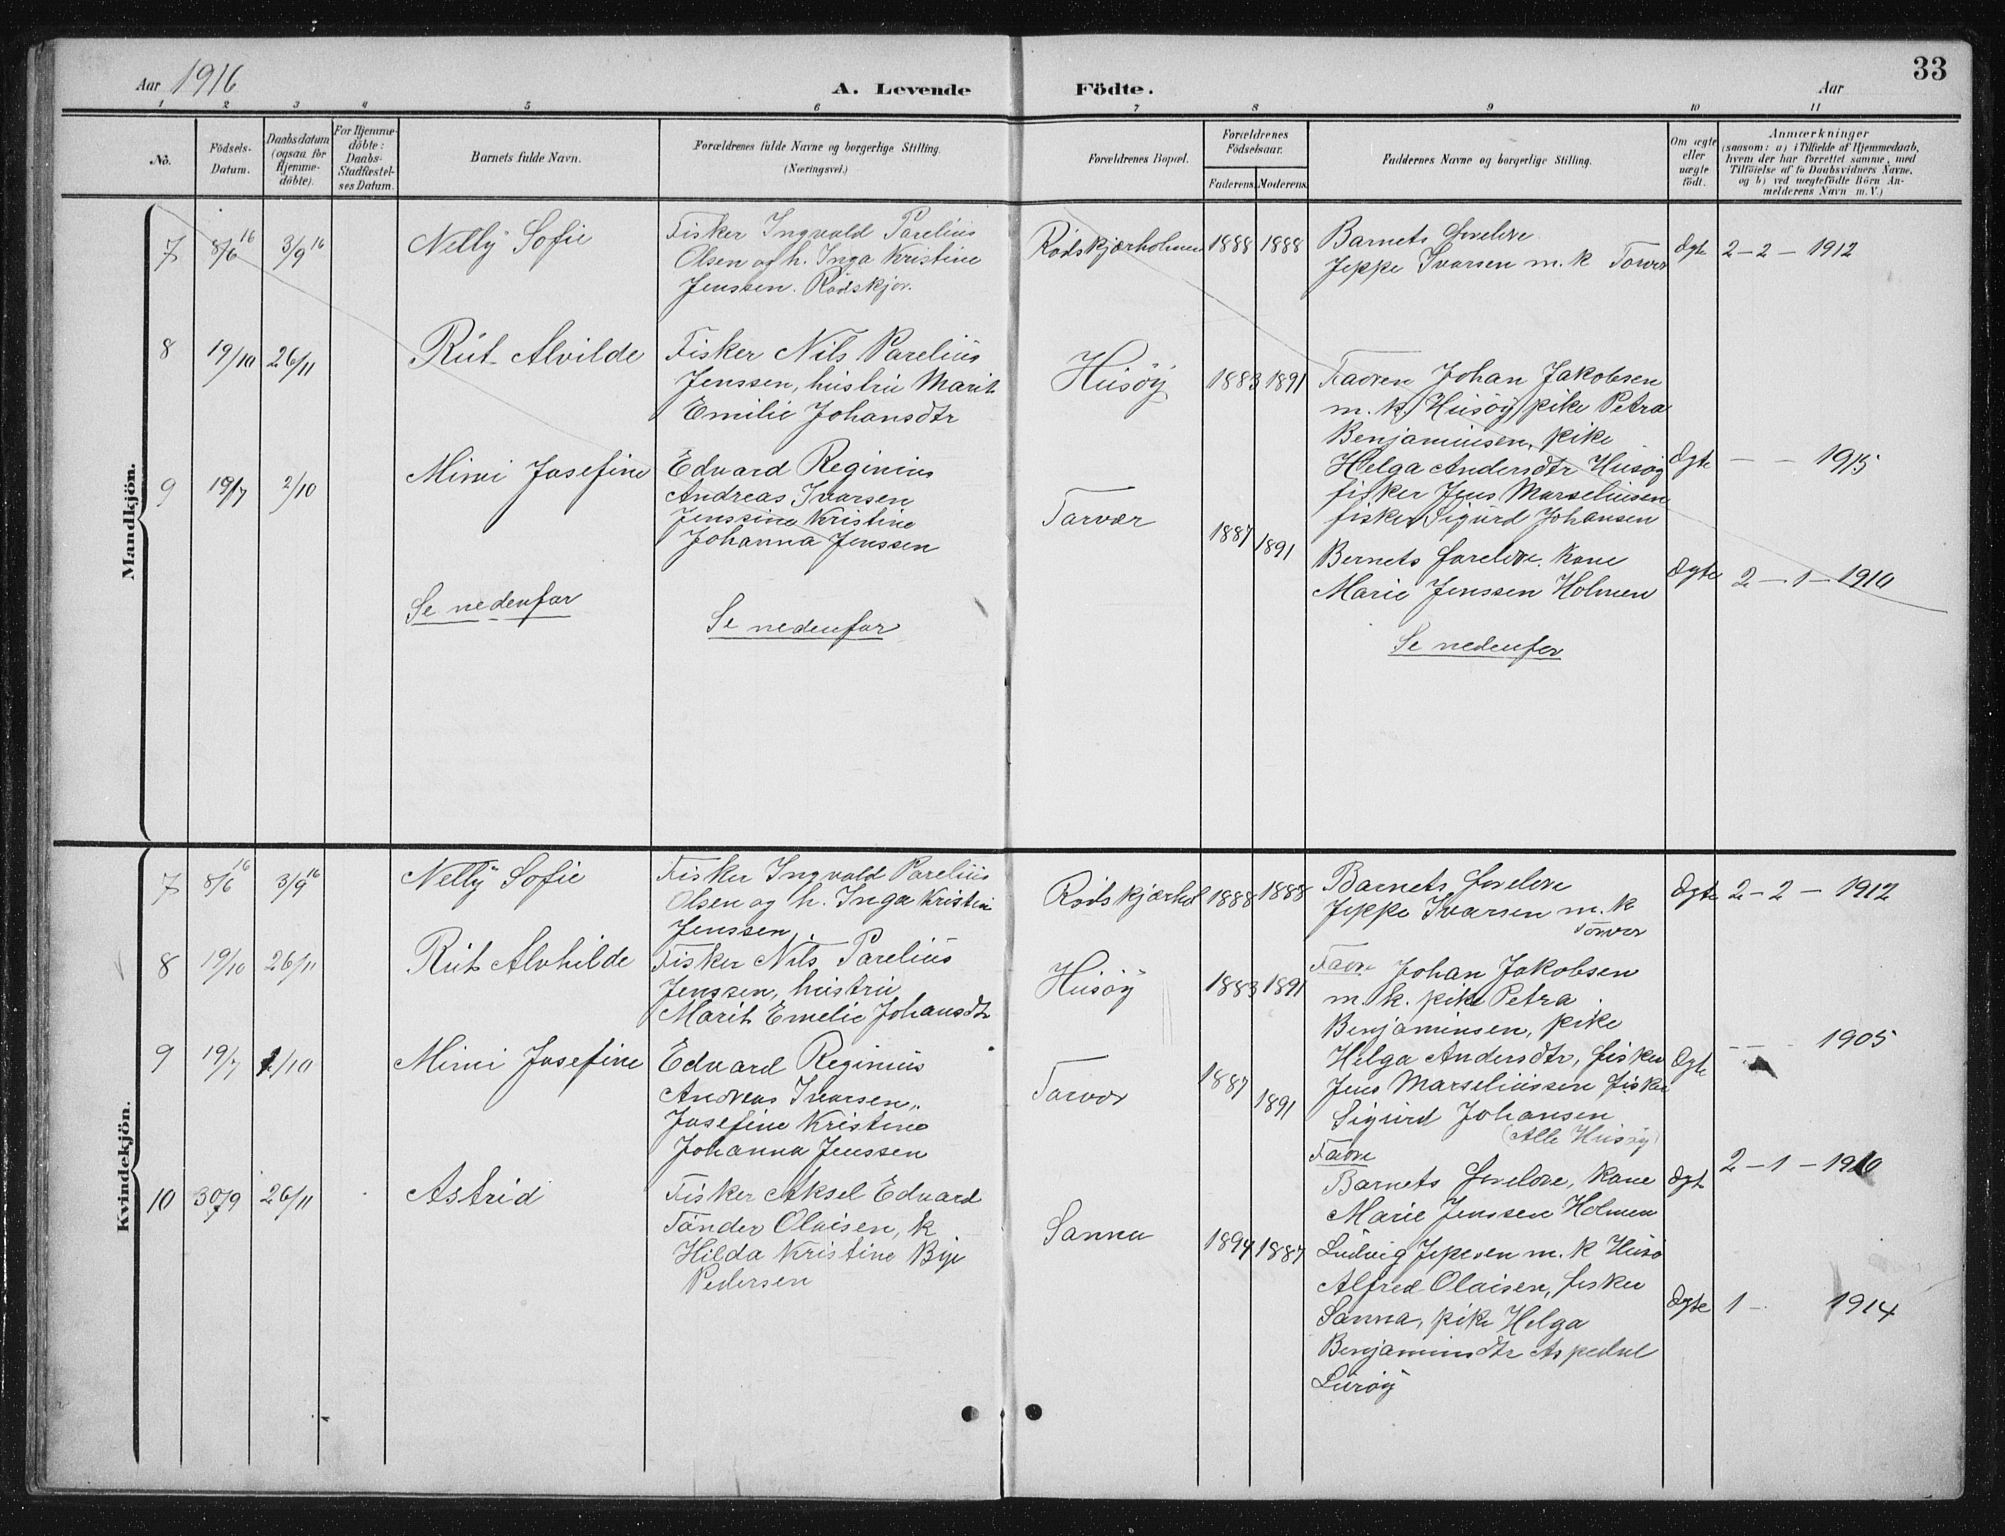 Aar 1916
A. Levende Födte.
Aar
33
1 2 3 4 5 6 7 8 9 10 11
No.
Födsels-
Datum.
Daabsdatum
(ogsaa for
Hjemme-
döbte).
For Hjemme-
döbte:
Daabs-
Stadfæstel-
ses Datum.
Barnets fulde Navn.
Forældrenes fulde Navne og borgerlige Stilling.
(Næringsvei.)
Forældrenes Bopæl.
Forældrenes
Födselsaar.
Faderens Moderens
Faddernes Navne og borgerlige Stilling.
Om ægte
eller
uægte
födt.
Anmærkninger
(saasom: a) i Tilfælde af Hjemmedaab,
hvem der har forrettet samme, med
Tilföielse af to Daabsvidners Navne,
og b) ved uægtefödte Börn An-
melderens Navn m. V.)
Mandkjön.
7 8/6 16 3/9 16
Nelly Sofie
Fisker Ingvald Parelius
Olsen og h. Inga Kristine
Jenssen. Rödskjær.
Rödskjærholmen 1888 1888
Barnets foreldre
Jeppe Ivarsen m. k Torvær
Ægte 2 - 2 - 1912
8 19/10 26/11
Rut Alvilde
Fisker Nils Parelius
Jenssen, hustru Marit
Emilie Johansdtr
Husöy 1883 1891
Fadren Johan Jakobsen
m. k, Husöy, pike Petra
Benjaminsen, pike
Helga Andersdtr Husöy
fisker Jens Marseliusen
fisker Sigurd Johansen
Ægte - - 1915
9 19/7 2/10
Mimi Josefine
Edvard Reginius
Andreas Ivarsen
Jenssine Kristine
Johanna Jenssen
Torvær 1887 1891
Bernets foreldre. kone
Marie Jenssen Holmen
Ægte 2 - 1 - 1910
Se nedenfor
Se nedenfor
Se nedenfor
Kvindekjön.
7 8/6 16 3/9 16
Nelly Sofie
Fisker Ingvald Parelius
Olsen og h. Inga Kristin
Jenssen
Rödskjærhol 1888 1888
Barnets foreldre
Jeppe Ivarsen m. k
Torvær
Ægte 2 - 2 - 1912
8 19/10 26/11
Rut Alvhilde
Fisker Nils Parelius
Jenssen, hustru
Marit Emelie Johansdtr
Husöy 1883 1891
Fadre Johan Jakobsen
m. k. pike Petra
Benjaminsen, pike
Helga Andersdtr, fisker
Jens Marseliussen fisker
Sigurd Johansen
(Alle Husöy)
Ægte - - 1905
9 19/7 /10
Mimi Josefine
Edvard Reginius
Andreas Ivarsen,
Josefine Kristine
Johanna Jenssen
Torvær 1887 1891
Fadre
Barnets foreldre, kone
Marie Jenssen Holmen
Ægt 2 - 1 - 1910
10 30/9 26/11
Astrid
Fisker Aksel Edvard
Tönder Olaisen, k
Hilda Kristine Bye
Pedersen
Sanna 1894 1887
Ludvig Jepesen m. k Husö
Alfred Olaisen, fisker
Sanna, pike Helga
Benjaminsdtr Aspedal
Luröy
Ægte 1 - 1914